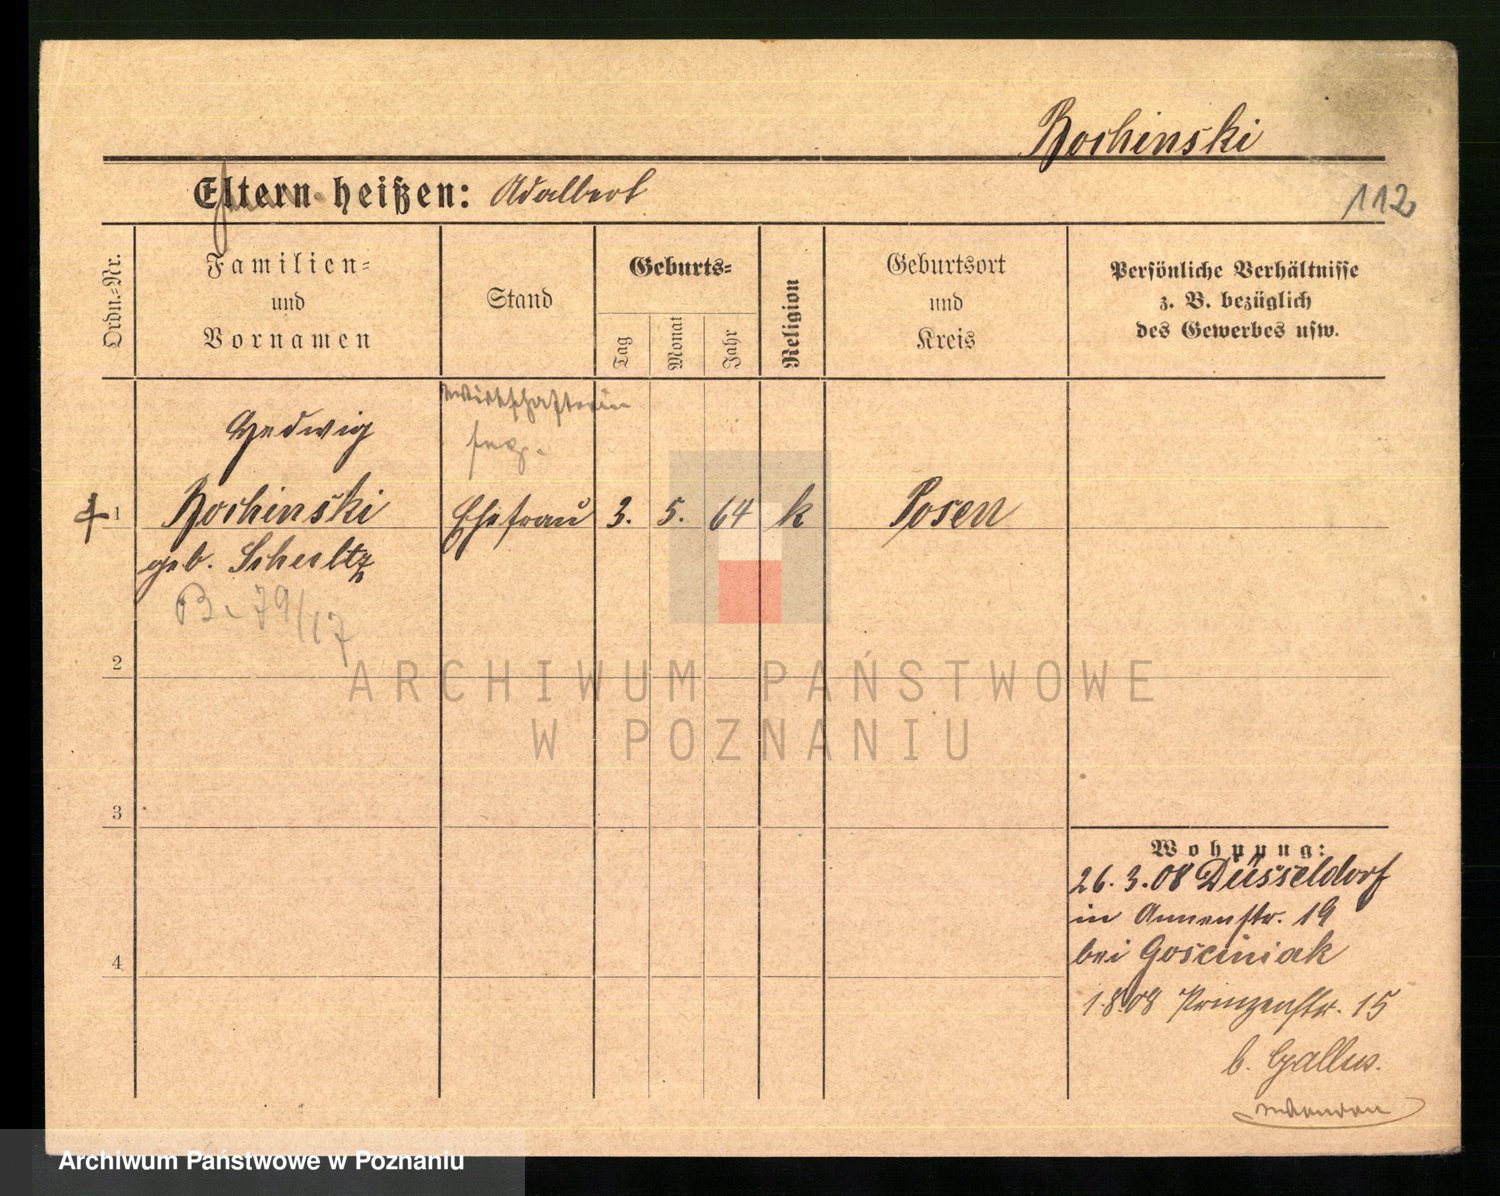 Rochinski
Eltern heißen: Adalbert
112
Ordn.-Nr.
Familien-
und
Vornamen
Stand
Geburts-
Tag
Monat
Jahr
Religion
Geburtsort
und
Kreis
Persönliche Verhältnisse
z. B. bezüglich
des Gewerbes usw.
Wirtschafterin
Hedwig
1 Rochinski Ehefrau 3. 5. 64 k Posen
geb. Schultz
B. 79/17
2
ARCHIWUM PAŃSTWOWE
W POZNANIU
3
Wohnung:
26.3.08 Düsseldorf
in Annenstr. 19
bei Gosciniak
4
1.8.08 Prinzenstr. 15
b. Gallus.
Archiwum Państwowe w Poznaniu